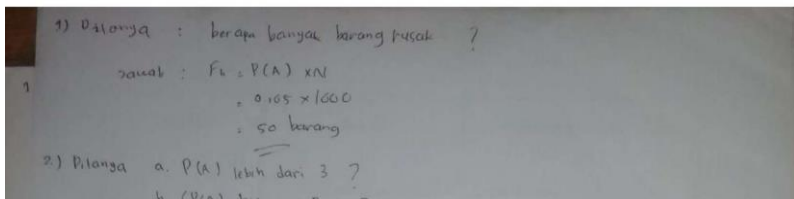 1) Ditanya : berapa banyak barang rusak ?
Jawab : Fh = P(A) x N
= 0,05 x 1000
= 50 barang
2.) Ditanya a. P(A) lebih dari 3 ?
b.